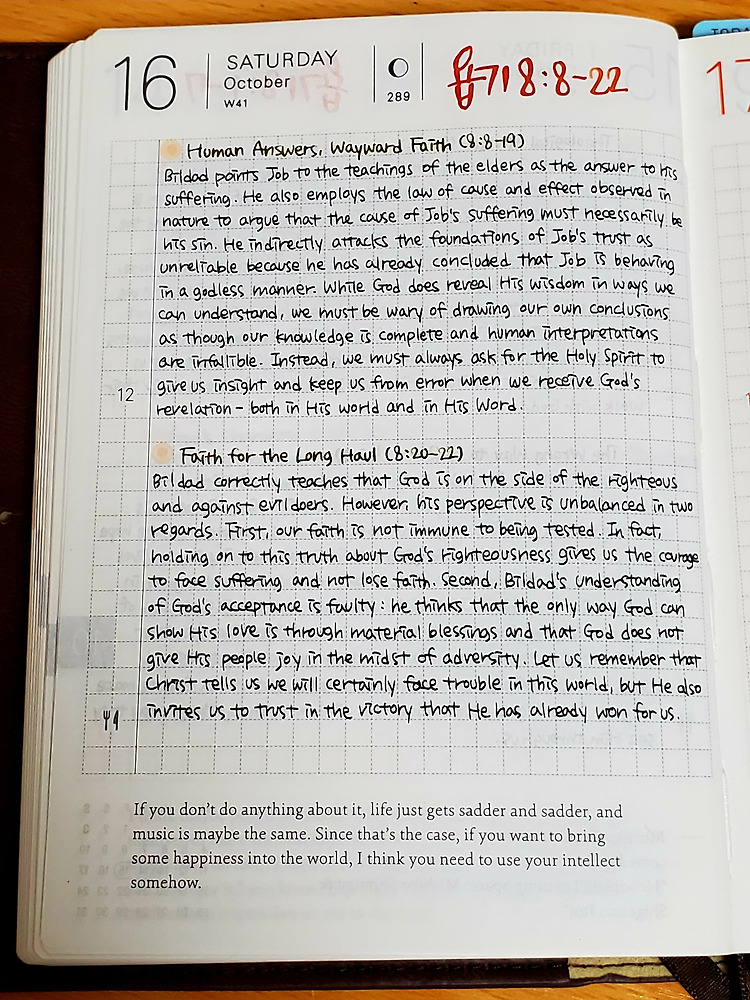 16
SATURDAY
October
W41
289
욥기 8:8-22
17
Human Answers, Wayward Faith (8:8-19)
Bildad points Job to the teachings of the elders as the answer to his
suffering. He also employs the law of cause and effect observed in
nature to argue that the cause of Job's suffering must necessarily be
his sin. He indirectly attacks the foundations of Job's trust as
unreliable because he has already concluded that Job is behaving
in a godless manner. While God does reveal His wisdom in ways we
can understand, we must be wary of drawing our own conclusions
as though our knowledge is complete and human interpretations
are infallible. Instead, we must always ask for the Holy Spirit to
12
give us insight and keep us from error when we receive God's
revelation - both in His world and in His Word.
Faith for the Long Haul (8:20-22)
Bildad correctly teaches that God is on the side of the righteous
and against evildoers. However, his perspective is unbalanced in two
regards. First, our faith is not immune to being tested. In fact,
holding on to this truth about God's righteousness gives us the courage
to face suffering and not lose faith. Second, Bildad's understanding
of God's acceptance is faulty: he thinks that the only way God can
show His love is through material blessings and that God does not
give His people joy in the midst of adversity. Let us remember that
Christ tells us we will certainly face trouble in this world, but He also
invites us to trust in the victory that He has already won for us.
If you don't do anything about it, life just gets sadder and sadder, and
music is maybe the same. Since that's the case, if you want to bring
some happiness into the world, I think you need to use your intellect
somehow.